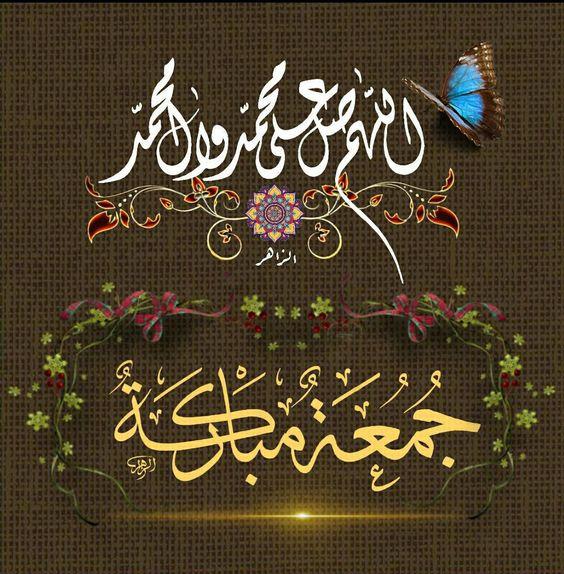 اللّهم صل على محمّد وال محمّد
الزاهر
جُمُعَةٌ مُبَارَكَةٌ
الزاهر